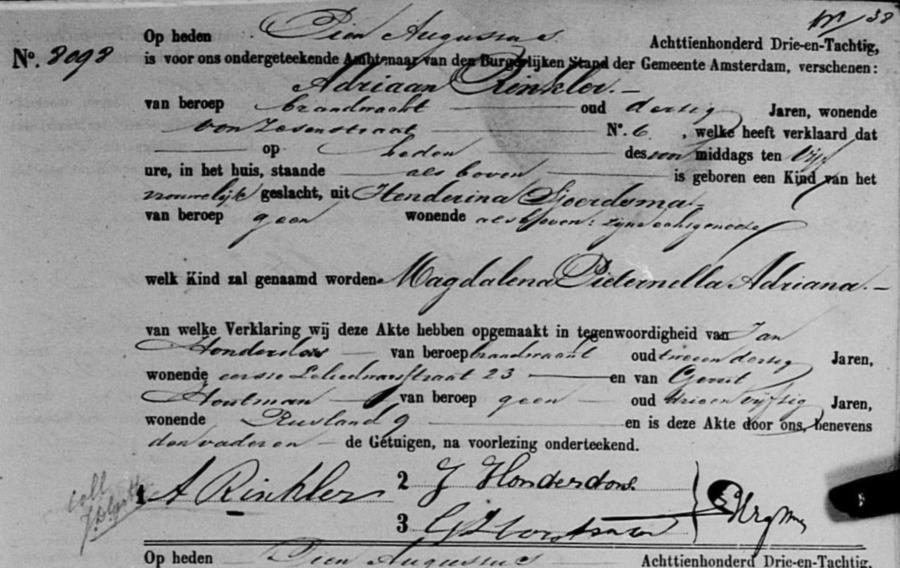 38
Op heden Tien Augustus Achttienhonderd Drie-en-Tachtig,
No. 8098 is voor ons ondergeteekende Ambtenaar van den Burgerlijken Stand der Gemeente Amsterdam, verschenen:
Adriaan Rinkler.
van beroep brandwacht oud dertig Jaren, wonende
von Zesenstraat No. 6, welke heeft verklaard dat
op heden des middags ten vijf
ure, in het huis, staande als boven is geboren een Kind van het
vrouwelijk geslacht, uit Henderina Sjoerdsma
van beroep geen wonende als boven: zijne echtgenoote
welk Kind zal genaamd worden Magdalena Pieternella Adriana.
van welke Verklaring wij deze Akte hebben opgemaakt in tegenwoordigheid van Jan
Honderdos van beroep brandwacht oud twee en dertig Jaren,
wonende eerste 23 en van Gerrit
Houtman van beroep geen oud drie en vijftig Jaren,
wonende Rusland 9 en is deze Akte door ons, benevens
den vader en de Getuigen, na voorlezing onderteekend.
1 A Rinkler 2 J Honderdos.
3 G Houtman
Op heden Tien Augustus Achttienhonderd Drie-en-Tachtig,